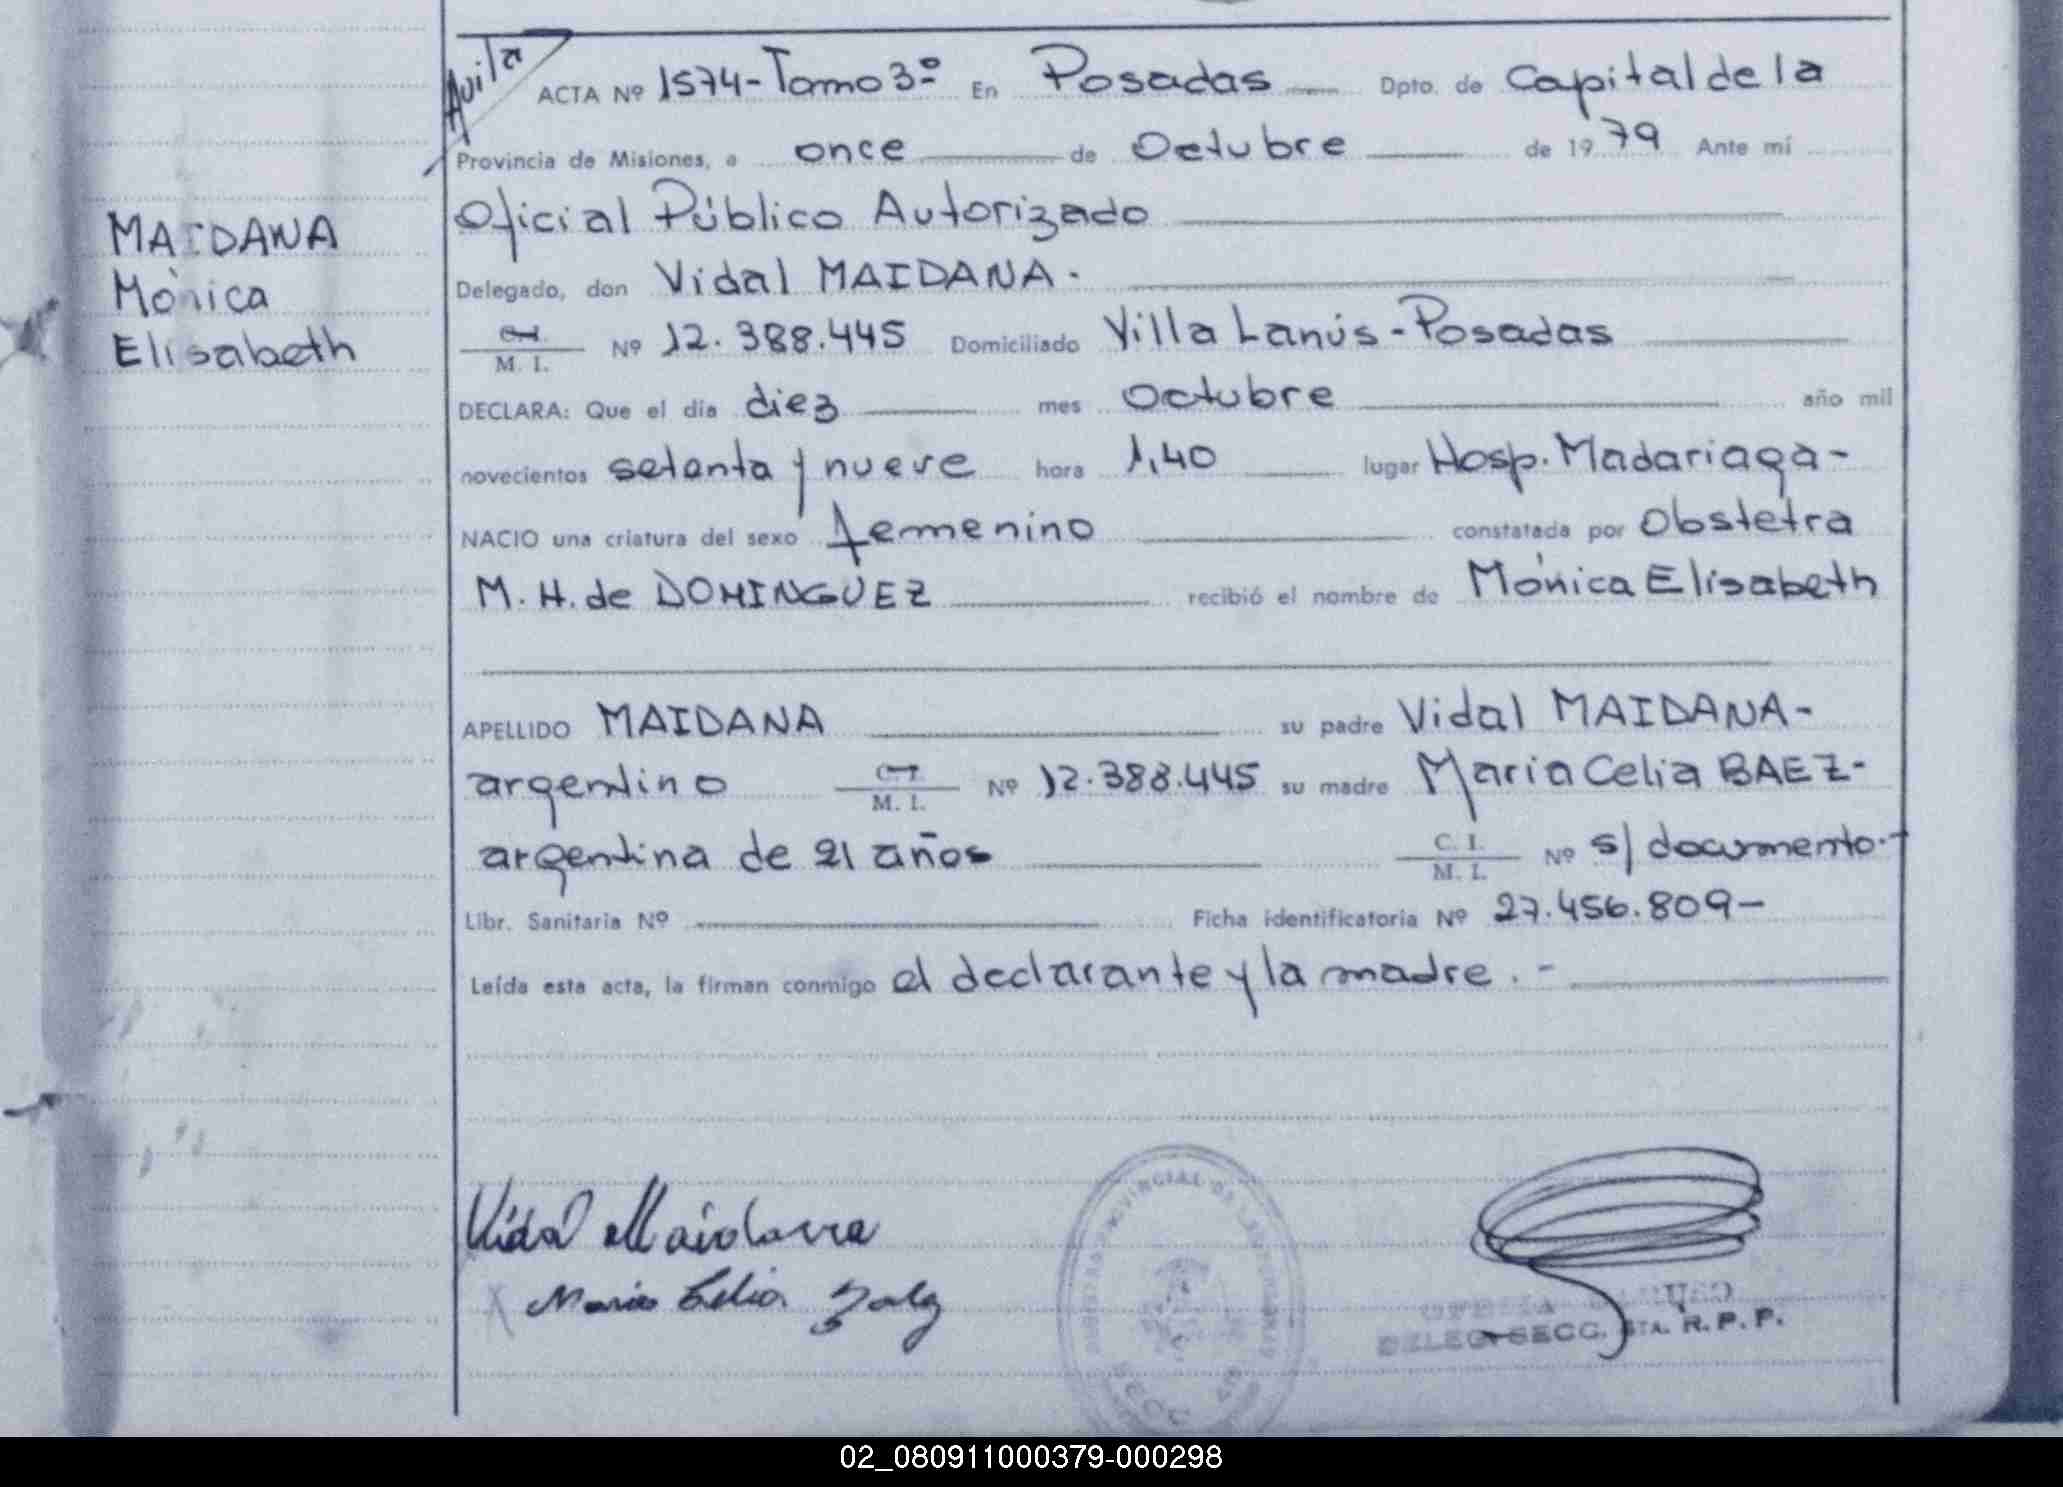 Avila
ACTA Nº 1574-Tomo 3º En Posadas Dpto. de Capital de la
Provincia de Misiones, a once de Octubre de 1979 Ante mí
Oficial Público Autorizado
Delegado, don Vidal MAIDANA.
C.I. M. I. Nº 12.388.445 Domiciliado Villa Lanús-Posadas
DECLARA: Que el día diez mes octubre año mil
novecientos setenta y nueve hora 1,40 lugar Hosp. Madariaga-
NACIO una criatura del sexo femenino constatada por Obstetra
M. H. de DOMINGUEZ recibió el nombre de Mónica Elisabeth
APELLIDO MAIDANA su padre Vidal MAIDANA-
argentino C.I. M. I. Nº 12.388.445 su madre Maria Celia BAEZ-
argentina de 21 años C. I. M. I. Nº s/ documento.-
Libr. Sanitaria Nº Ficha identificatoria Nº 27.456.809-
Leída esta acta, la firman conmigo el declarante y la madre.-
MAIDANA
Mónica
Elisabeth
Vidal Maidana
X Maria Celia Baez
PROVINCIAL DE LAS PERSONAS
SECC
DELEG. SECC. 5TA. R. P. P.
02_080911000379-000298